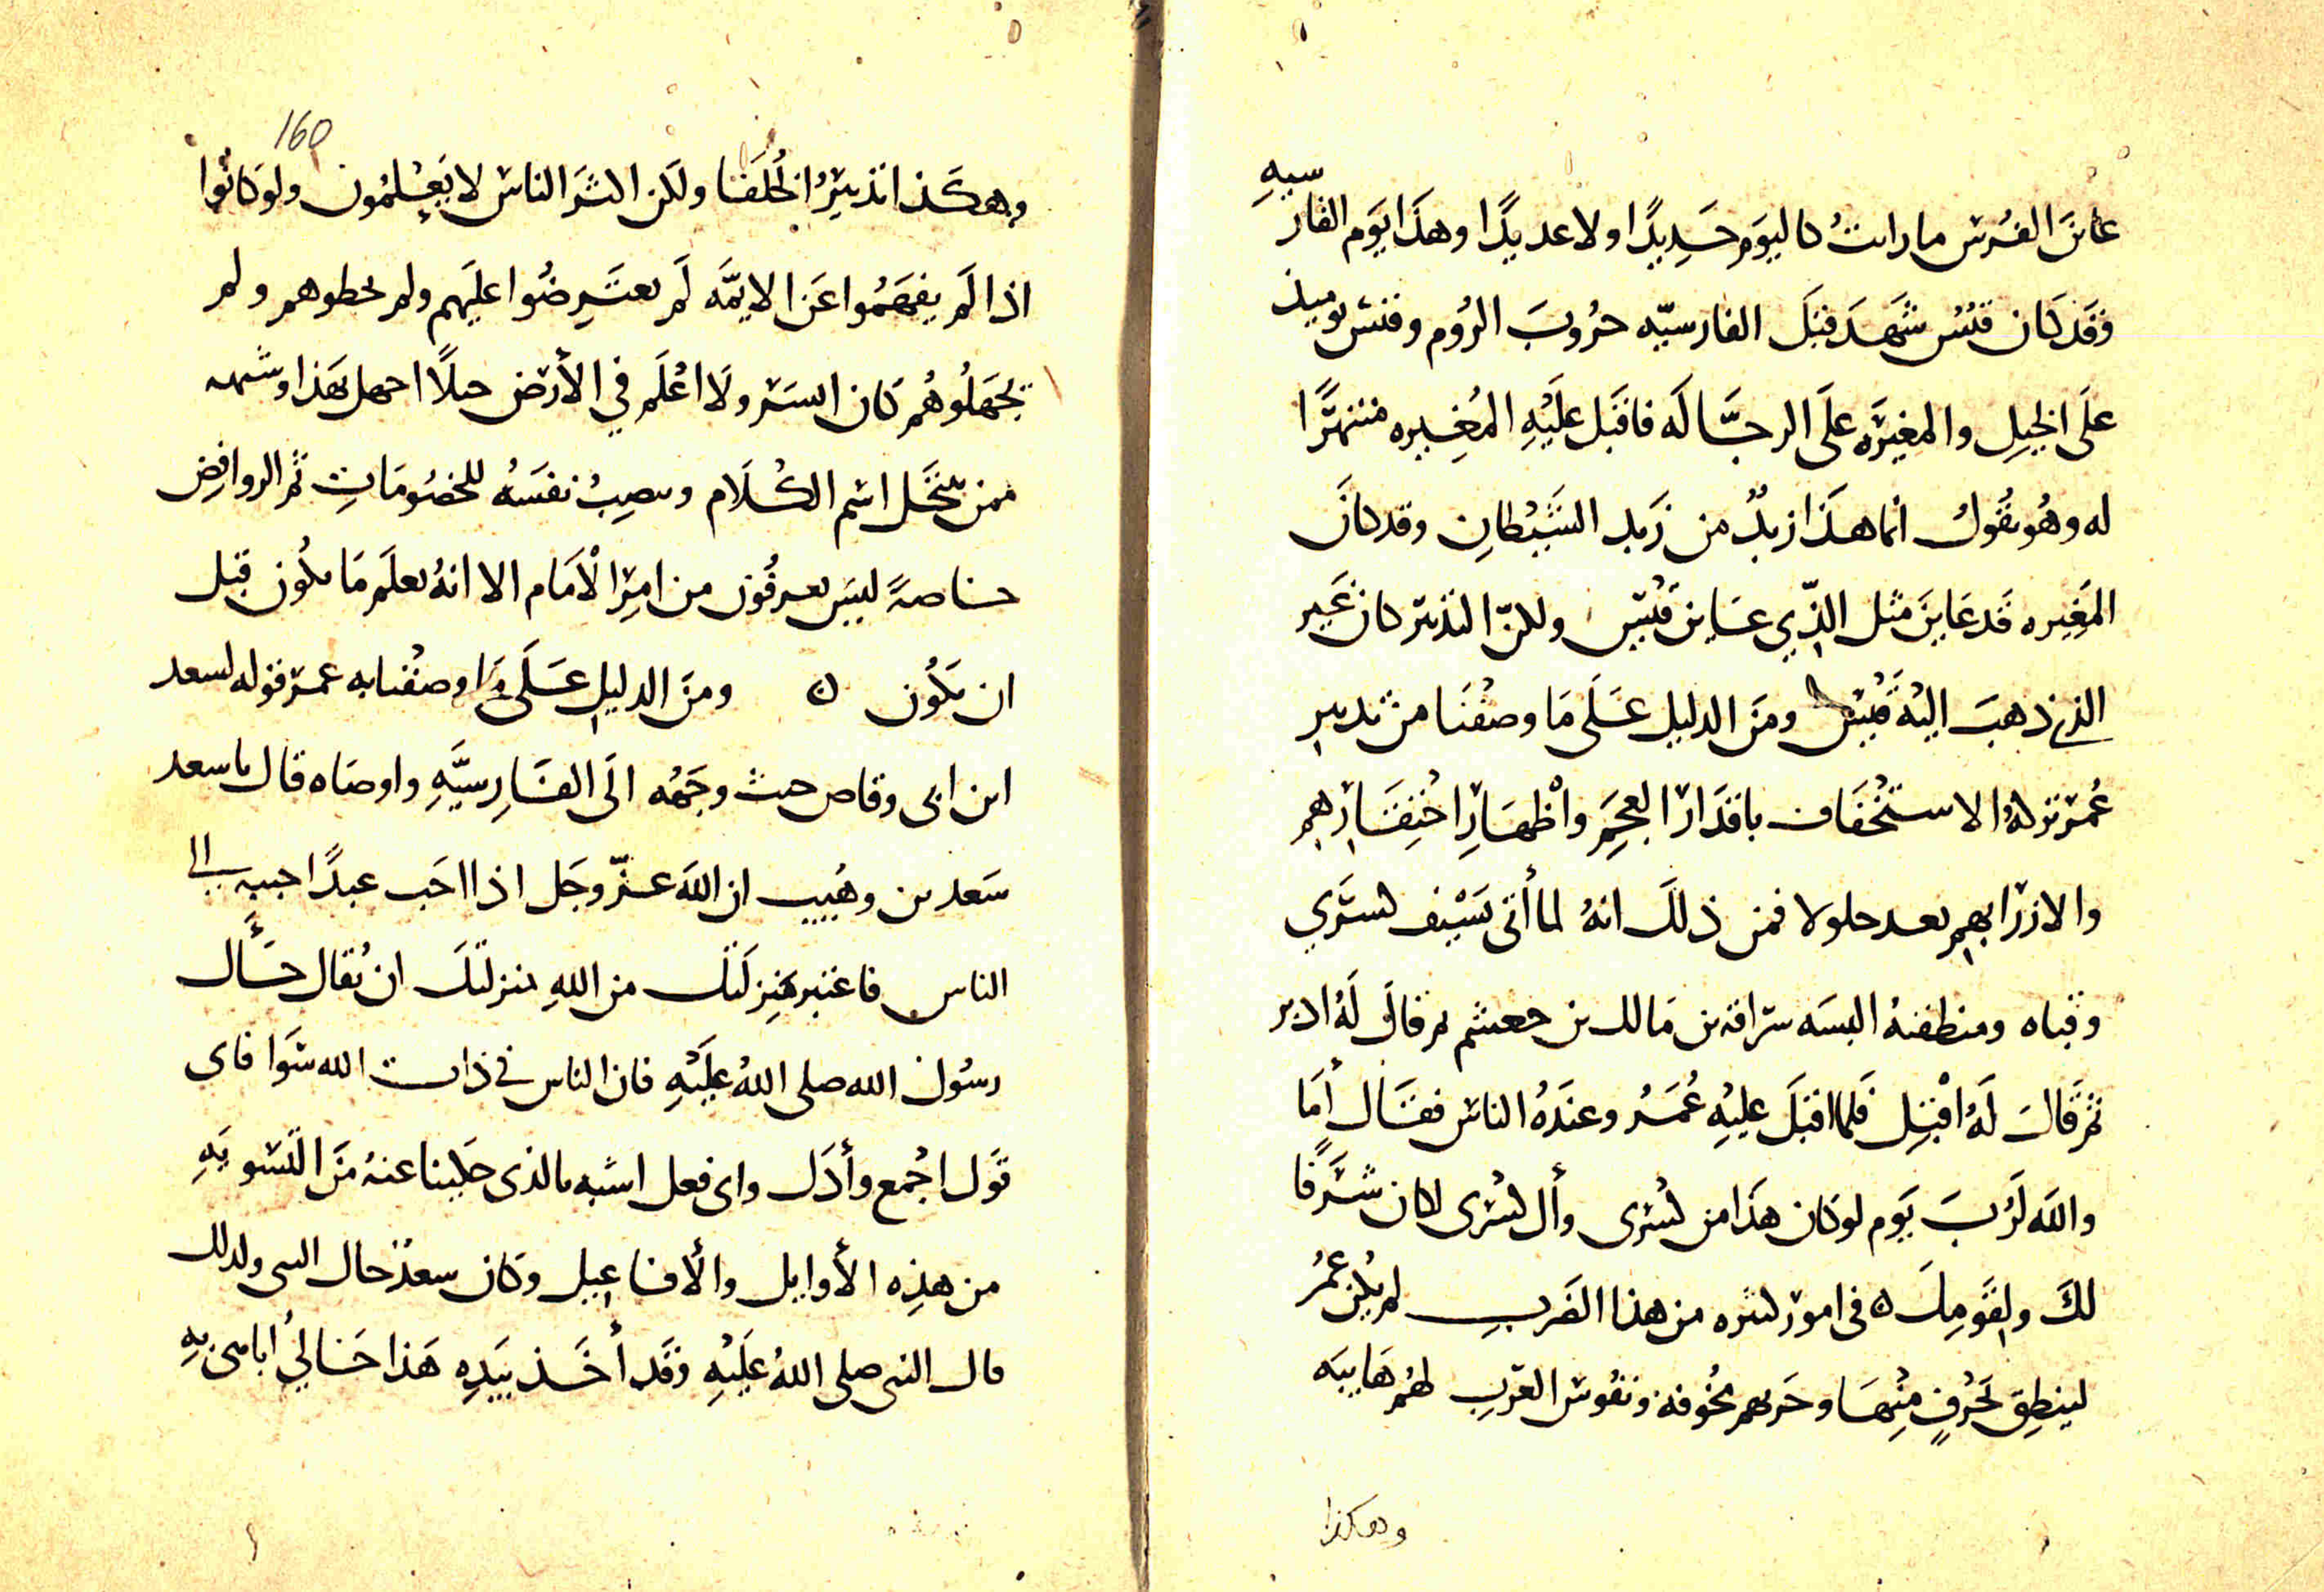 عاين الفرس ما رايت كاليوم حديدا ولا عديدا وهذا يوم الفارسيه
وقد كان قيس شهد قبل الفارسيّه حروب الروم وقيس يوميذ
على الخيل والمغيره على الرجّاله فاقبل عليه المغيره منتهرًا
له وهو يقول انما هذا زبدٌ من زبد الشيطان وقد كان
المغيره قد عاين مثل الذي عاين قيس ولكنّ التدبير كان غير
الذي ذهب اليه قيس ومن الدليل على ما وصفنا من تدبير
عمر تركه الاستخفاف باقدار العجم واظهار احتقارهم
والازرا بهم بعد جلولا فمن ذلك انه لما أتى بسيف كسرى
وقباه ومنطقته البسه سراقه بن مالك بن جعشم ثم قال له ادبر
ثم قال له اقبل فلما اقبل عليه عمر وعنده الناس فقال أما
والله لربّ يوم لو كان هذا من كسرى وأل كسرى لكان شرفًا
لك ولقومك ه فى امور كثيره من هذا الضرب لم يكن عمر
لينطق بحرفٍ منها وحربهم مخوفه ونفوس العرب لهم هايبه
وهكذا
160
وهكذا تدبير الخلفا ولكن اكثر الناس لا يعلمون ولو كانوا
اذا لم يفهموا عن الايمّه لم يعترضوا عليهم ولم يخطوهم ولم
يجهلوهم كان ايسر ولا اعلم في الأرض جيلًا اجهل بهذا وشبهه
ممن ينتحل اسم الكلام وينصب نفسه للخصومات ثم الروافض
خاصةً ليس يعرفون من امر الأمام الا انه يعلم ما يكون قبل
ان يكون ه ومن الدليل على ما وصفنا به عمر قوله لسعد
ابن ابى وقاص حيث وجهه الى الفارسيّه واوصاه قال يا سعد
سعد بن وهيب ان الله عزّ وجل اذا احب عبدًا حببه الى
الناس فاعتبر منزلتك من الله بمنزلتك ان يقال خال
رسول الله صلى الله عليه فان الناس في ذات الله سوا فاى
قول اجمع وأدل واى فعل اشبه بالذى حكينا عنه من التسويه
من هذه الأوايل والأفاعيل وكان سعد خال النبى ولذلك
قال النبى صلى الله عليه وقد أخذ بيده هذا خالي أباهى به